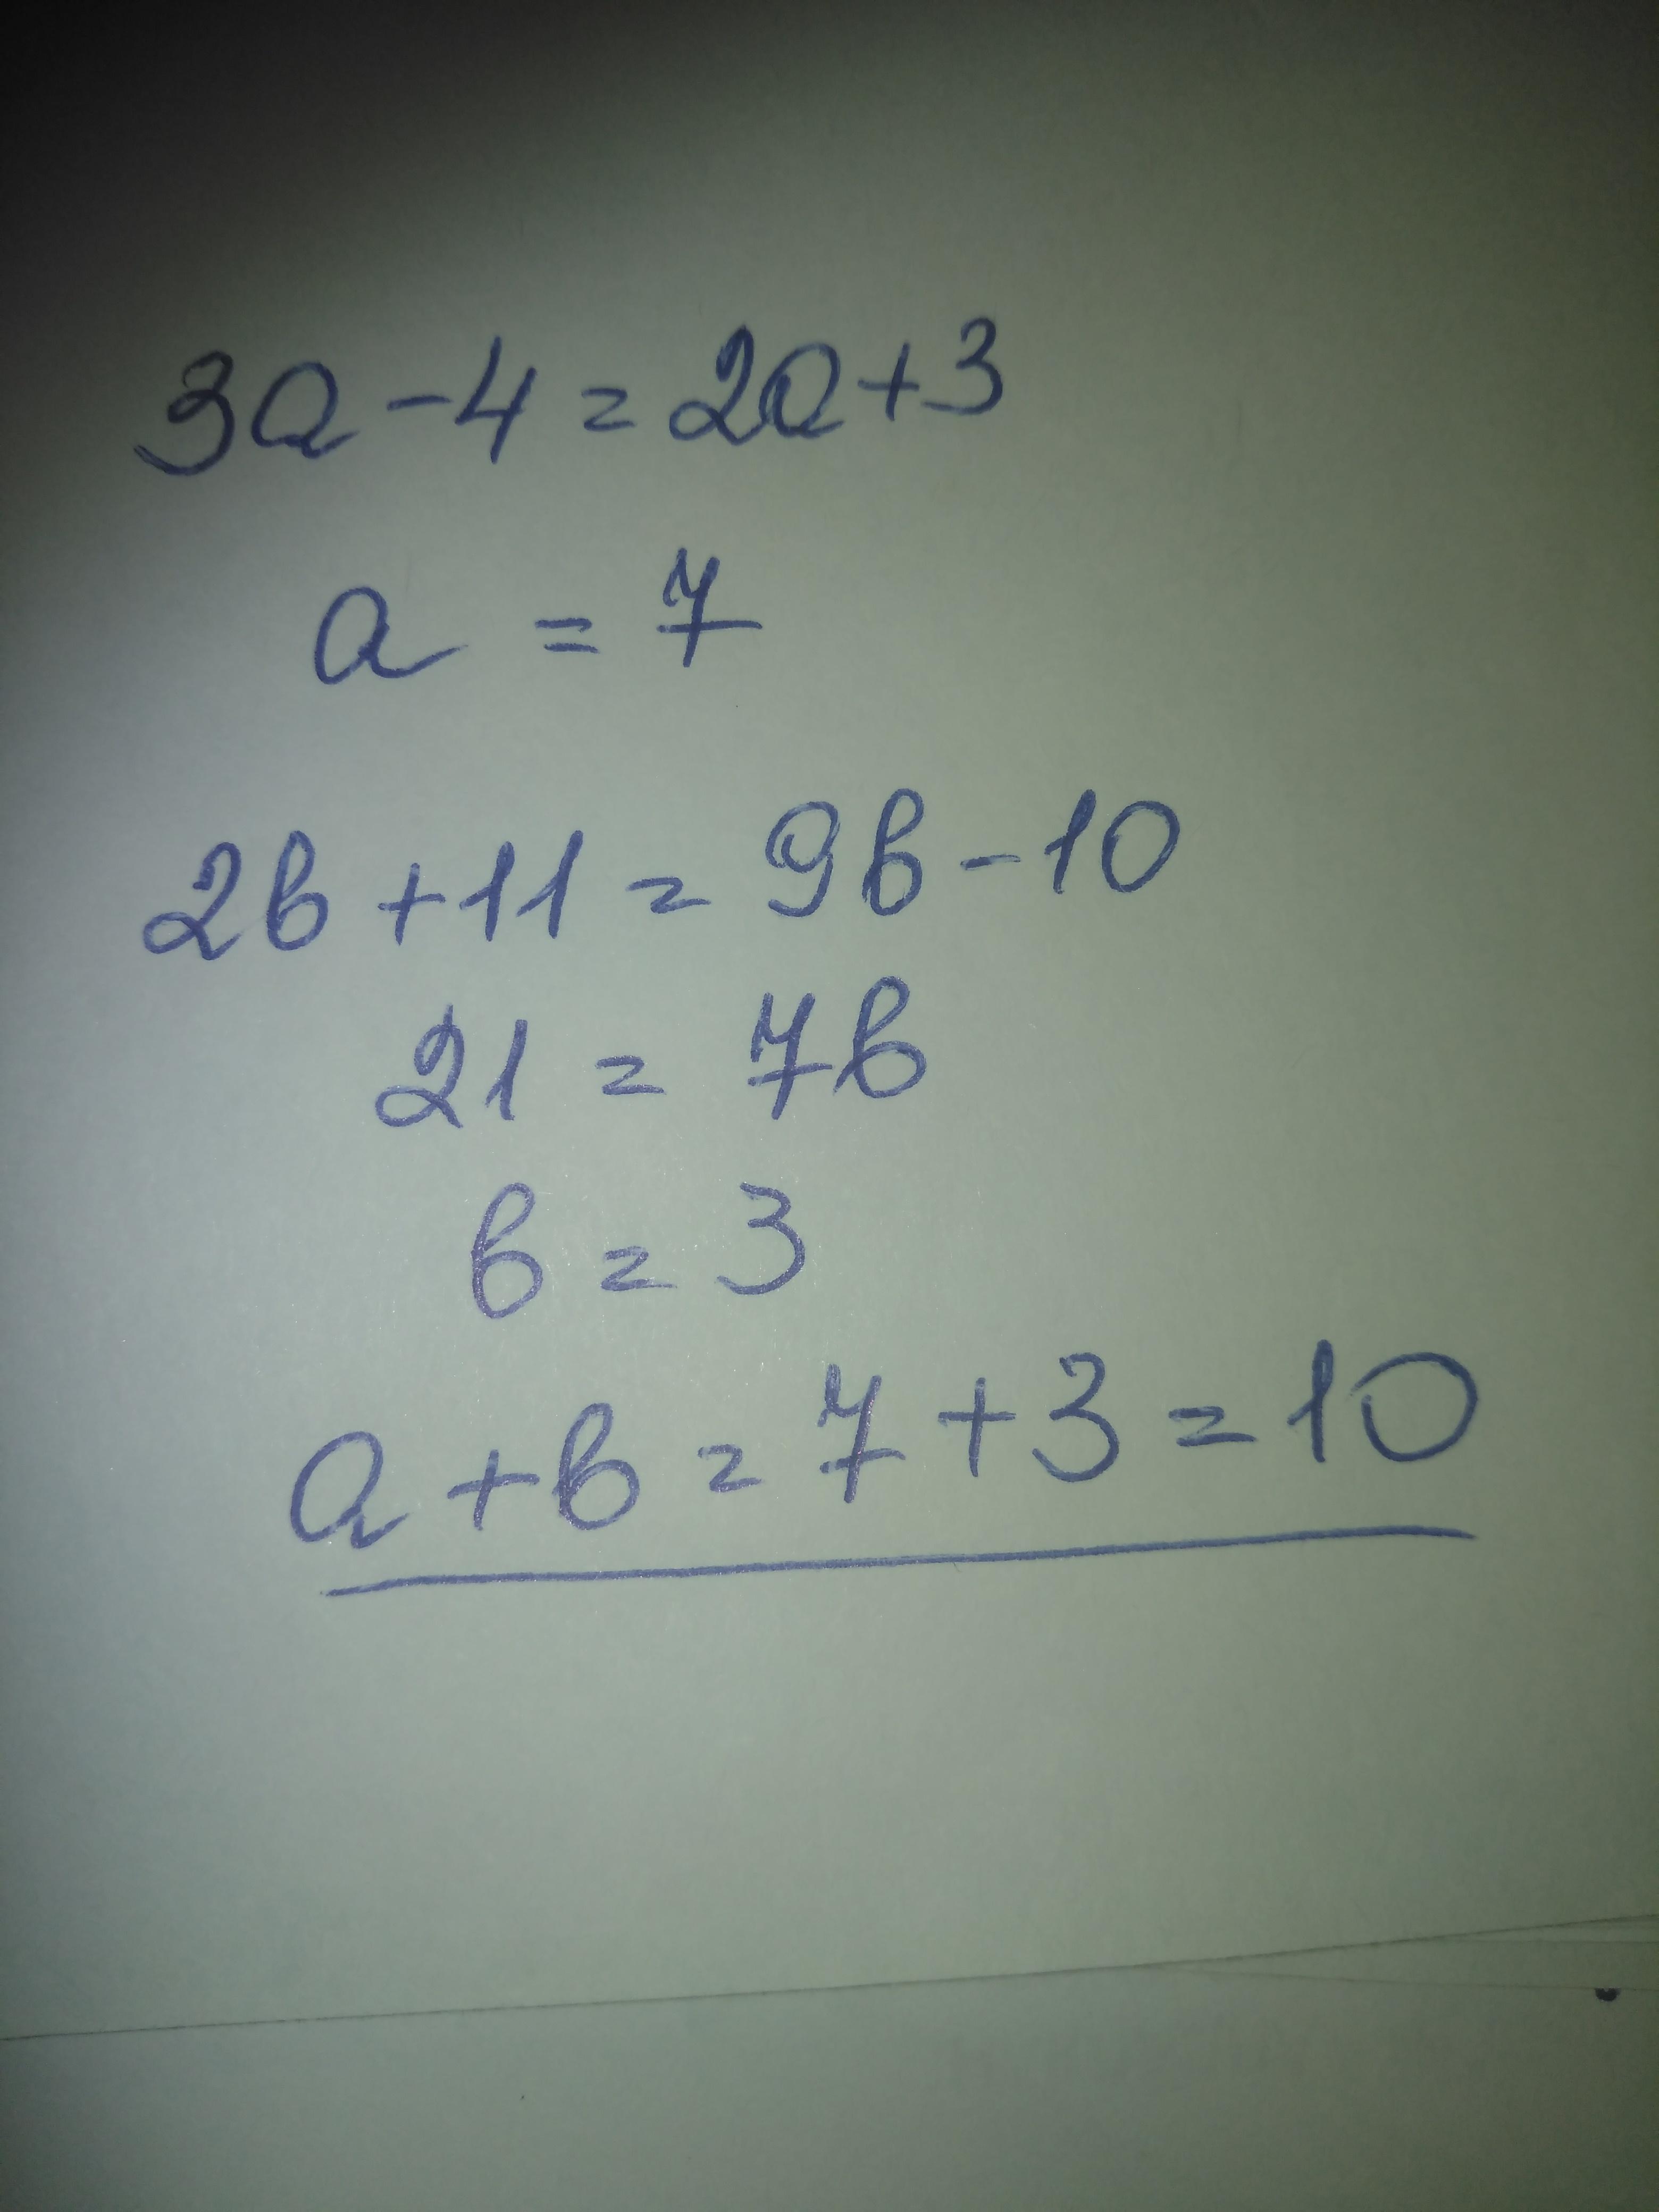 3a - 4 = 2a + 3
a = 7
2b + 11 = 9b - 10
21 = 7b
b = 3
a + b = 7 + 3 = 10